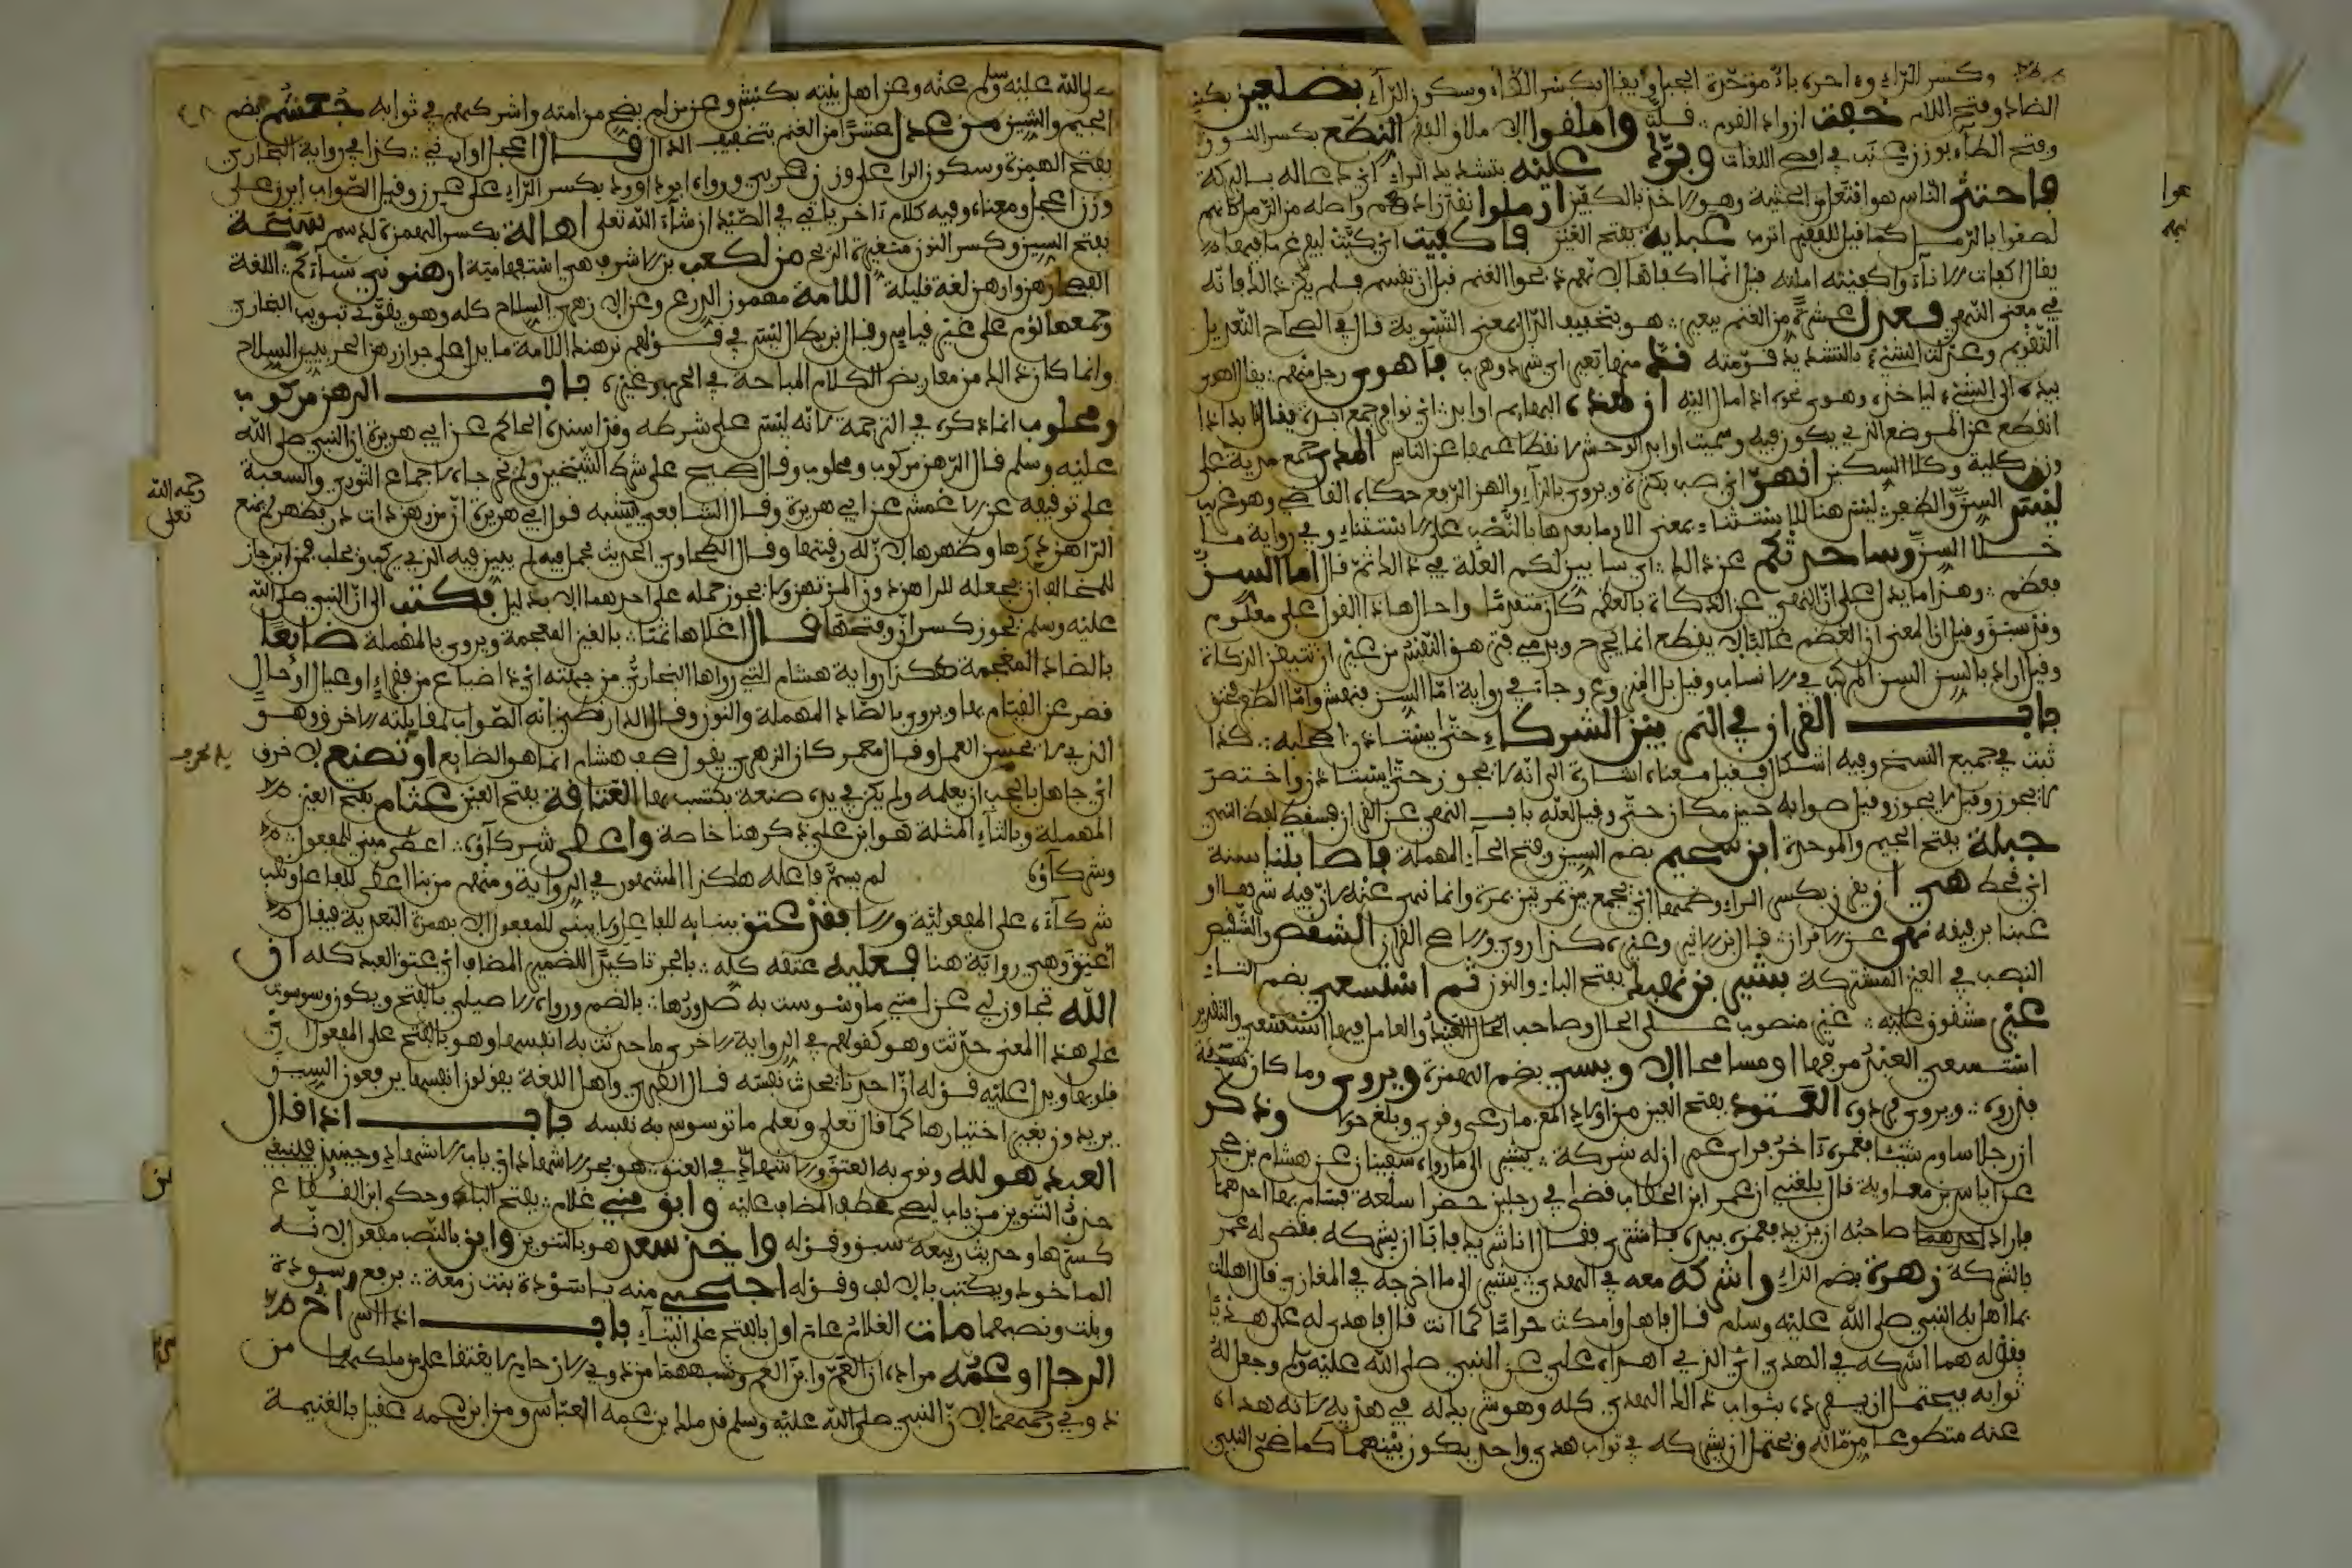 وكسر الراء وءاخره باء موحدة الجبل ويقال بكسر الظاء وسكون الراء بضلعين بكسر
الضاد وفتح اللام خفت ازواد القوم قلت واملقوا اي الفقر النطع بكسر النون
وفتح الطاء بوزن عنب في افصح اللغات وبرك عليه بتشديد الراء اي دعا له بالبركة
فاحتثى الناس هو افتعل من الحثية وهو الاخذ بالكفين ارملوا نفد زادهم واصله من الرمل كانهم
لصقوا بالرمل كما قيل للفقير الترب عباية بفتح العين فاكفيت اي كبت ليفرغ ما فيها
يقال كفات الاناء واكفيته املته قيل انما اكفاها لانهم ذبحوا الغنم قبل ان تقسم فلم يكن ذلك فانه
في معنى النهبى فعدل عشرة من الغنم ببعير هو بتخفيف الدال بمعنى التسوية قال في الصحاح التعديل
التقويم وعدلت الشيء بالتشديد قومته فند منها بعير اي شرد وهرب فاهوى رجل منهم يقال اهوى
بيده الى الشيء لياخذه وهوى نحوه اذا مال اليه ان لهذه البهايم اوابد اي نوافر جمع ابدة يقال ابد اذا
انقطع عن الموضع الذي يكون فيه وسميت اوابد الوحش لانقطاعها عن الناس المدى جمع مدية على
وزن كلية وكلا السكين انهر اي صب بكثرة ويروى بالزاي والهز الرفع حكاه القاضي وهو غريب
ليس السن والظفر ليس هنا للاستثناء بمعنى الا وما بعدها بالنصب على الاستثناء وفي رواية ما
خلا السن وساحدثكم عن ذلك اي سابين لكم العلة في ذلك ثم قال اما السن
فعظم وهذا مما يدل على ان النهي عن الذكاة بالعظم كان متقدما واحال هذا القول على معلوم
وقد سبق وقيل ان المعنى ان العظم غالبا لا يقطع انما يجرح ويدمي فتزهق النفس من غير ان تتيقن الذكاة
وقيل اراد بالسن السن المركب في الانسان وقيل بل المنزوع وجاء في رواية اما السن فنهش واما الظفر فخنق
باب القران في التمر بين الشركاء حتى يستاذن اصحابه كذا
ثبت في جميع النسخ وفيه اشكال فقيل معناه اشارة الى انه لا يجوز حتى يستاذن واختصر
لا يجوز وقيل لا يجوز وقيل صوابه حين مكان حتى وقيل لعله باب النهي عن القران فسقط لفظ النهي
جبلة بفتح الجيم والموحدة ابن سحيم بضم السين وفتح الحاء المهملة فاصابتنا سنة
اي قحط نهى ان يقرن بكسر الراء وضمها اي يجمع بين تمرتين بمرة وانما نهي عنه لان فيه شرها او
غبنا برفيقه نهى عن الاقران قال ابن الاثير وغيره كذا روي والاصح القران الشقص والشقيص
النصيب في العين المشتركة بشير بن نهيك بفتح الباء والنون ثم استسعي بضم التاء
غير مشقوق عليه غير منصوب على الحال وصاحب الحال العبد والعامل فيها استسعي والتقدير
استسعي العبد مرفها او مسامحا
فذروه ويروى فردوه العتود بفتح العين من اولاد المعز ما رعى وقوي وبلغ حولا وذكر
ان رجلا ساوم شيئا فغمزه ءاخر فراى عمر ان له شركة يشير الى ما رواه سفيان عن هشام بن حجير
عن اياس بن معاوية قال بلغني ان عمر ابن الخطاب قضى في رجلين حضرا سلعة فسام بها احدهما
فاراد صاحبه ان يزيد فغمزه بيده فاشترى فقال انا شريك فابى ان يشركه فقضى له عمر
بالشركة زهرة بضم الزاي واشركه معه في الهدي يشير الى ما اخرجه في المغازي قال اهللت
بما اهل به النبي صلى الله عليه وسلم قال فاهد وامكث حراما كما انت قال فاهدى له علي هديا
بقوله هنا اشركه في الهدي اي الذي اهداه علي عن النبي صلى الله عليه وسلم وجعل له
ثوابه فيحتمل ان يفرده بثواب ذلك الهدي كله وهو شريك له في هديه لانه هداه
عنه متطوعا من ماله ويحتمل ان يشركه في ثواب هدي واحد يكون بينهما كما ضحى النبي
صلى الله عليه وسلم عنه وعن اهل بيته بكبش وعن من لم يضح من امته واشركهم في ثوابه جشم بضم
الجيم والشين من عدل عشرا من الغنم بتخفيف الدال قال اعجل او ارني كذا في رواية البخاري
بفتح الهمزة وسكون الراء على وزن عربي ورواه ابو داوود بكسر الراء على
وزن اعجل ومعناه وفيه كلام ءاخر ياتي في الصيد ان شاء الله تعلى اهالة بكسر الهمزة الدسم سنخة
بفتح السين وكسر النون متغيرة الريح من لكعب بن الاشرف هي استفهامية ارهنوني نساءكم اللغة
الفصحى رهن وارهن لغة قليلة اللامة مهموز الدرع وعن الازهري السلاح كله وهو يقوي تبويب البخاري
وجمعها لؤم على غير قياس وقال ابن بطال ليس في قولهم نرهنك اللامة ما يدل على جواز رهن الحربيين السلاح
وانما كان ذلك من معاريض الكلام المباحة في الحرب وغيره باب الرهن مركوب
ومحلوب انما ذكره في الترجمة لانه ليس على شرطه وقد اسنده الحاكم عن ابي هريرة ان النبي صلى الله
عليه وسلم قال الرهن مركوب ومحلوب وقال صحيح على شرط الشيخين ولم يخرجاه لاجماع الثوري وشعبة
على توقيفه عن الاعمش عن ابي هريرة وقال الشافعي يشبه قول ابي هريرة ان من رهن ذات در وظهر لم يمنع
الراهن درها وظهرها لان له رقبتها وقال الطحاوي الحديث مجمل فيه لم يبين فيه الذي يركب ويحلب فمن اين جاز
للمخالف ان يجعله للراهن دون المرتهن ولا يجوز حمله على احدهما الا بدليل فكتب الي ان النبي صلى الله
عليه وسلم يجوز كسر ان وفتحها قال اغلاها ثمنا بالغين المعجمة ويروى بالمهملة ضايعا
بالضاد المعجمة هكذا رواية هشام التي رواها البخاري من جهته اي ذا ضياع من فقر او عيال او حال
قصر عن القيام بها ويروى بالصاد المهملة والنون وقال الدارقطني انه الصواب لمقابلته الاخرق وهو
الذي لا يحسن العمل وقال معمر كان الزهري يقول صحف هشام انما هو الصانع او تصنع لاخرق
اي جاهل بما يجب ان يعلمه ولم يكن في يده صنعة يكتسب بها العتاقة بفتح العين عثام بفتح العين
المهملة وبالثاء المثلثة هو ابن علي ذكر هنا خاصة واعطى شركاؤه اعطي مبني للمفعول
وشركاؤه لم يسم فاعله هكذا المشهور في الرواية ومنهم من بنا اعطى للفاعل ونصب
شركاءه على المفعولية والا فقد عتق ببنايه للفاعل ولا يبنى للمفعول الا بهمزة التعدية فيقال
اعتق وهي رواية هنا فعليه عتقه كله بالجر تاكيدا للضمير المضاف اي عتق العبد كله ان
الله تجاوز لي عن امتي ما وسوست به صدورها بالضم ورواه الاصيلي بالفتح ويكون وسوست
على هذا المعنى حدثت وهو كقولهم في الرواية الاخرى ما حدثت به انفسها وهو بالفتح على المفعول
قلوبها ويدل عليه قوله ان احدنا يحدث نفسه قال الطبري واهل اللغة يقولون انفسها يرفعون السين
يريدون بغير اختيارها كما قال تعلى ونعلم ما توسوس به نفسه باب اذا قال
العبد هو لله ونوى به العتق والاشهاد في العتق هو بجر الاشهاد اي باب الاشهاد وحينئذ فينبغي
حذف التنوين من باب ليصح عطف المضاف عليه وابق مني غلام بفتح الباء وحكى ابن القطاع
كسرها وحديث ربيعة سبق وقوله واخذ سعد هو بالتنوين وابن بالنصب مفعول لانه
الماخوذ ويكتب بالالف وقوله احتجبي منه يا سودة بنت زمعة برفع سودة
وبنت ونصبهما مات الغلام عام اول بالفتح على البناء باب اذا اسر اخ
الرجل او عمه مراده ان العم وابن العم ونحوهما من ذوي الارحام لا يعتقا على من ملكهما من
ذوي رحمهما لان النبي صلى الله عليه وسلم قد ملك من عمه العباس ومن ابن عمه عقيل بالغنيمة
رحمه الله
تعلى